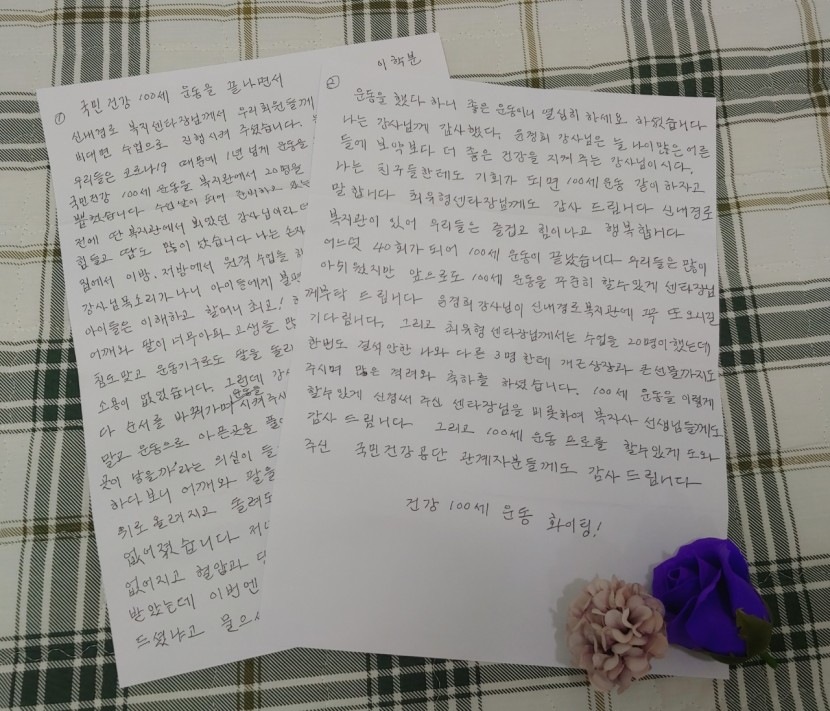 ①
국민건강 100세 운동을 끝나면서
신내경로 복지센타장님께서 우리회원들께
비대면 수업으로 진행시켜 주셨습니다.
우리들은 코로나19 때문에 1년 넘게 운동을
국민건강 100세 운동을 복지관에서 20명을
전에 딴 복지관에서 뵈었던 강사님이라
힘들고 땀도 많이 났습니다 나는 손자
집에서 이방, 저방에서 원격 수업을 하
강사님목소리가 나니 아이들에게 불편
아이들은 이해하고 할머니 최고!
어깨와 팔이 너무아파 고생을 많
침도맞고 운동기구로도 팔을 돌리
소용이 없었습니다. 그런데 강사
다 순서를 바꿔가며 운동을 시켜주시
말고 운동으로 아픈곳을 풀어
곳이 낳을까'라는 의심이 들
하다보니 어깨와 팔을
위로 올려지고 돌려도
없어졌습니다 저
없어지고 혈압과 당
받았는데 이번엔
드셨냐고 물으시
이학분
②
운동을 했다 하니 좋은 운동이니 열심히 하세요 하셨습니다
나는 강사님께 감사했다. 윤경희 강사님은 늘 나이많은 어른
들에 보약보다 더 좋은 건강을 지켜 주는 강사님이시다.
나는 친구들한테도 기회가 되면 100세운동 같이 하자고
말합니다 최유형센타장님께도 감사 드립니다 신내경로
복지관이 있어 우리들은 즐겁고 힘이나고 행복합니다
어느덧 40회가 되어 100세 운동이 끝났습니다 우리들은 많이
아쉬웠지만 앞으로도 100세 운동을 꾸준히 할수있게 센타장님
께부탁 드립니다 윤경희강사님이 신내경로복지관에 꼭 또오시길
기다립니다. 그리고 최유형 센타장님께서는 수업을 20명이했는데
한번도 결석안한 나와 다른 3명 한테 개근상장과 큰선물까지도
주시며 많은 격려와 축하를 하셨습니다. 100세 운동을 이렇게
할수있게 신경써 주신 센타장님을 비롯하여 복지사 선생님들께도
감사 드립니다 그리고 100세 운동 프로를 할수있게 도와
주신 국민건강공단 관계자분들께도 감사 드립니다
건강 100세 운동 화이팅!